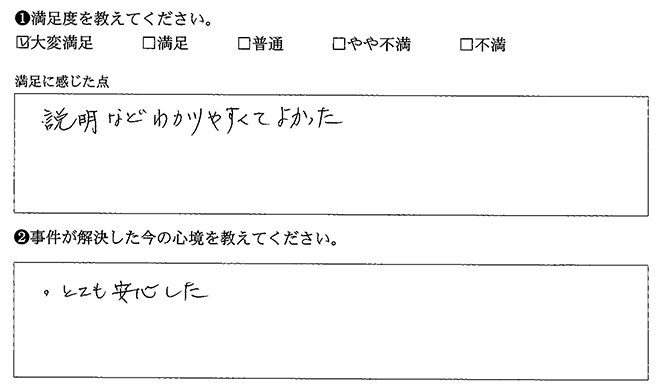 ❶満足度を教えてください。
☑大変満足 □満足 □普通 □やや不満 □不満
満足に感じた点
説明などわかりやすくてよかった
❷事件が解決した今の心境を教えてください。
。とても安心した